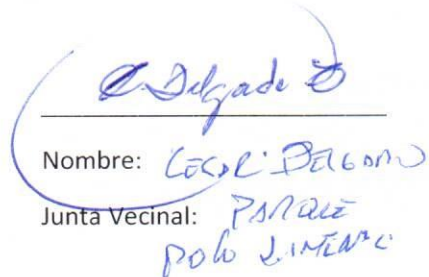 C. Delgado O
Nombre: CESAR DELGADO
Junta Vecinal: PARQUE
POLO LIMENC